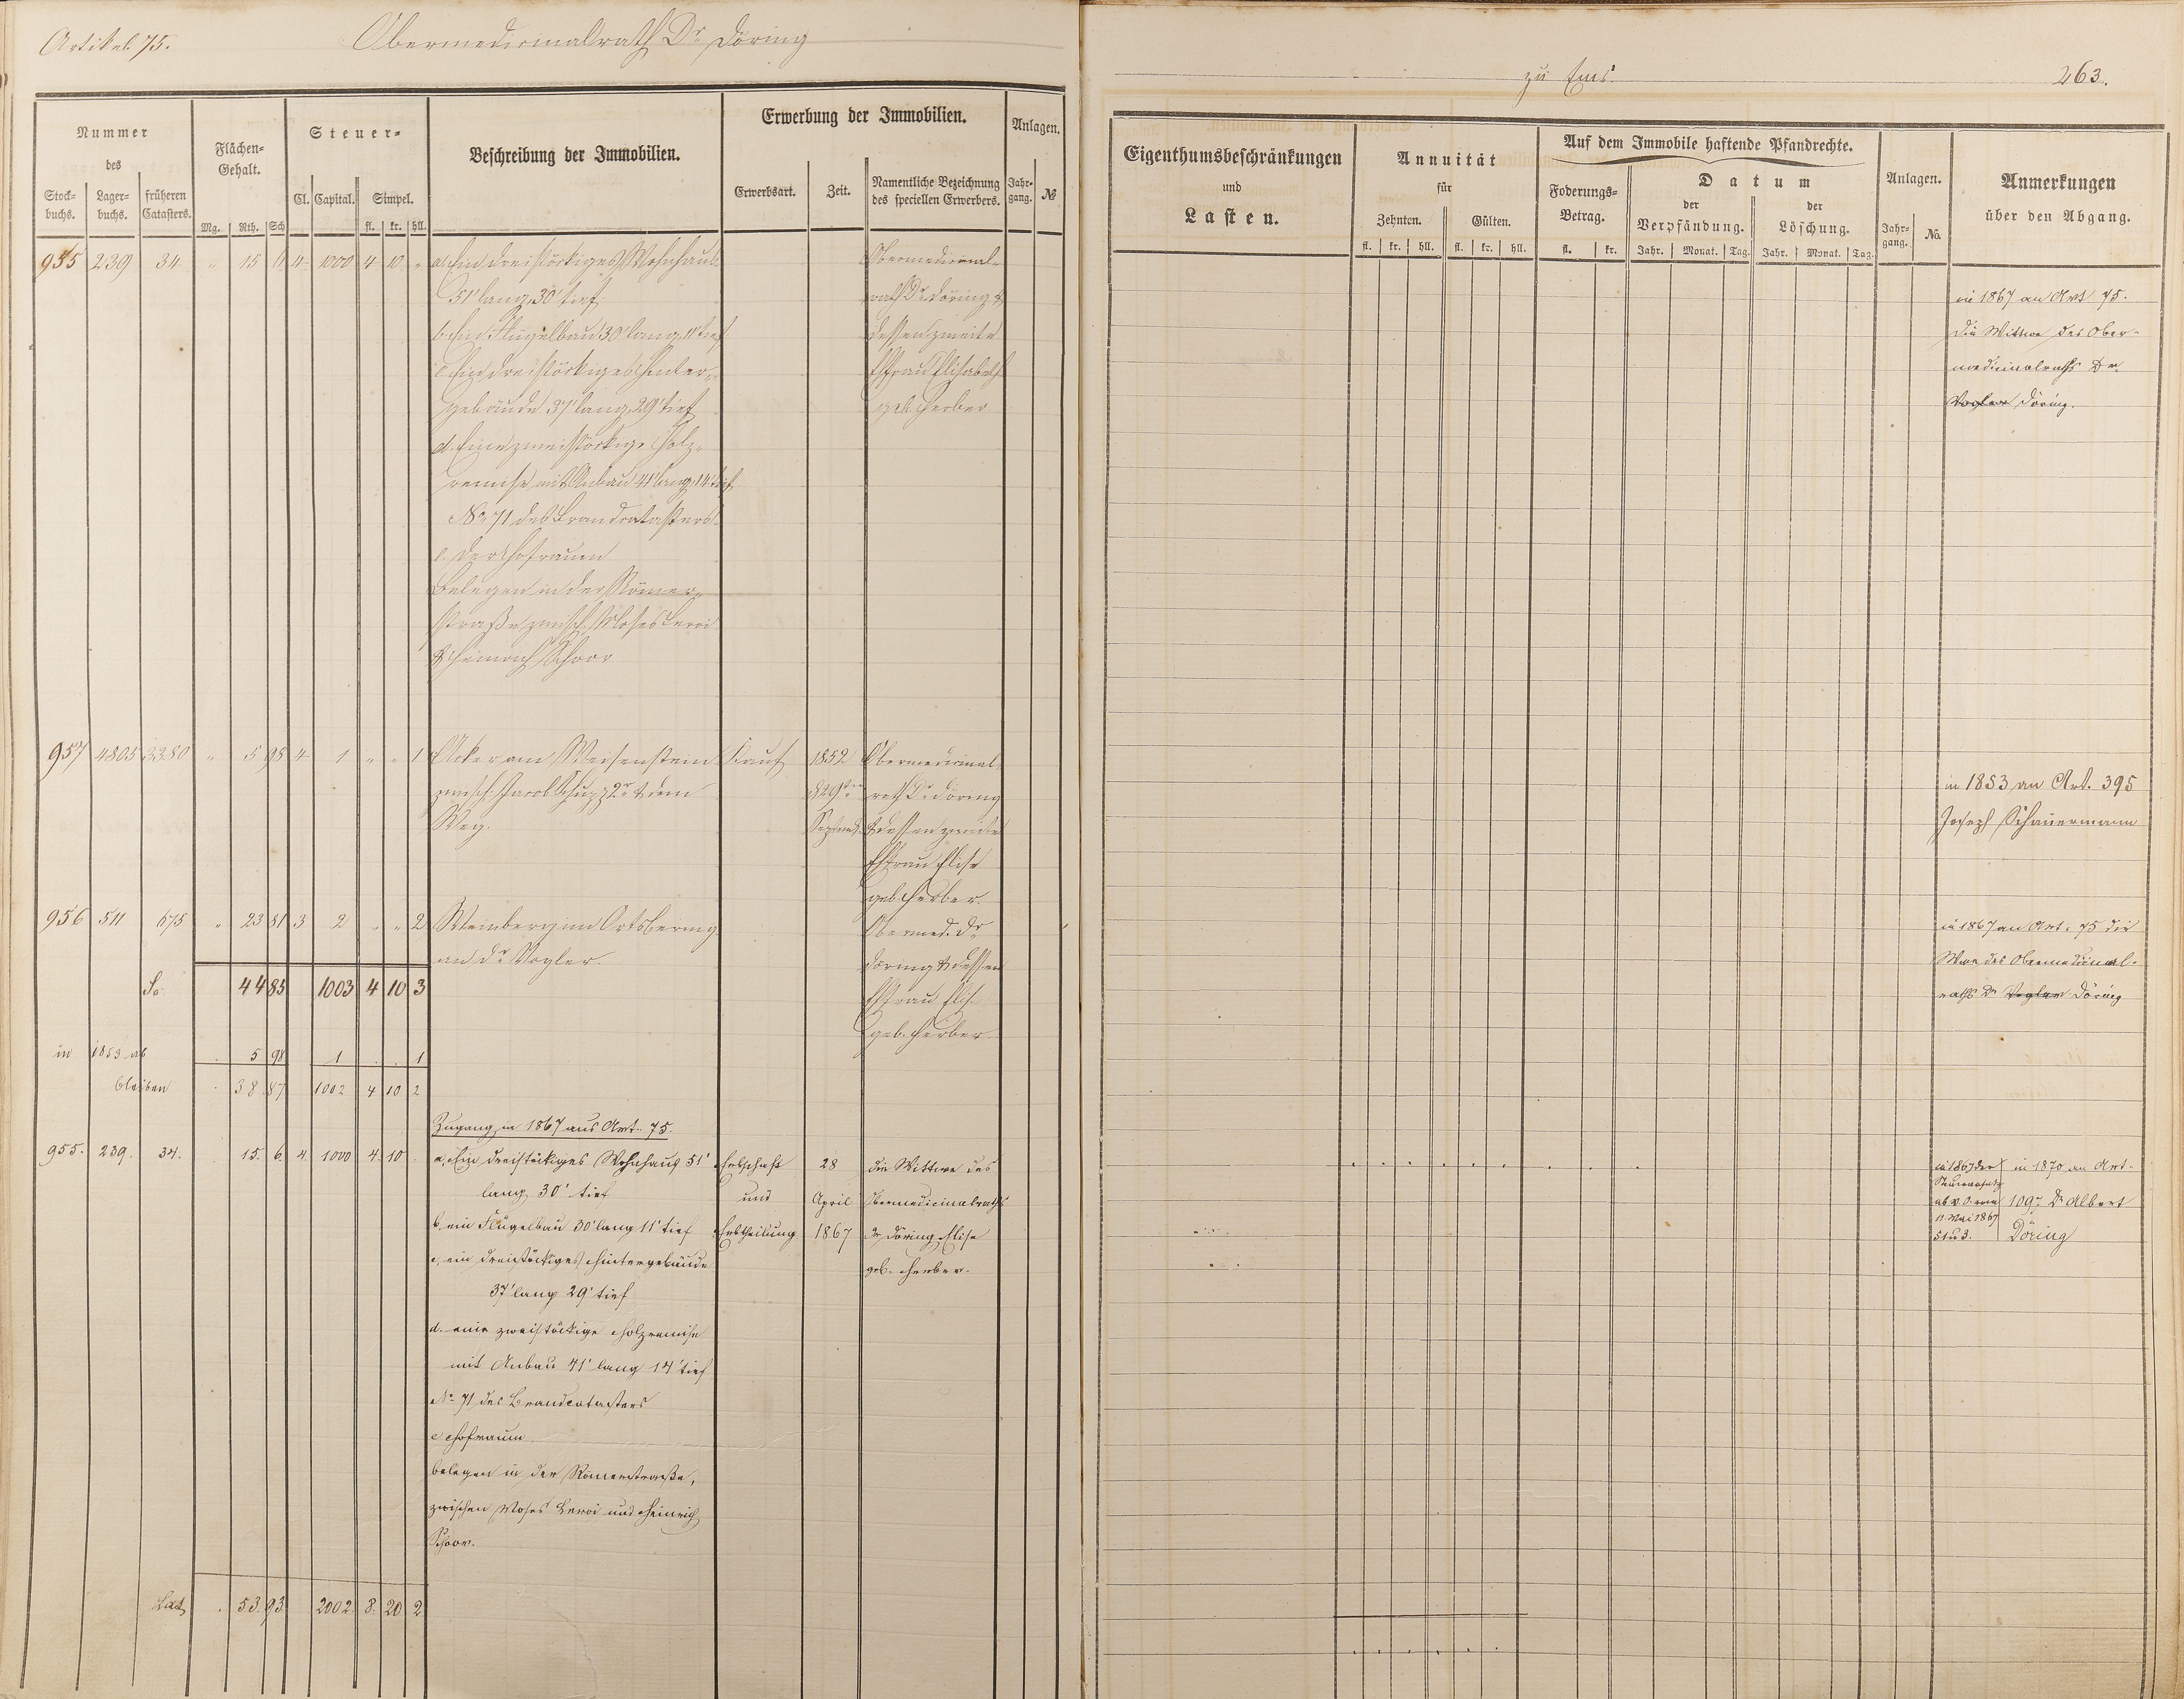 Artikel 75. Obermedicinalrath Dr Döring
zu Ems. 263.
Nummer
des
Stock-
buchs.
Lager-
buchs.
früheren
Catasters.
Flächen-
Gehalt.
Mg. Rth. Sch
Steuer-
Cl. Capital. Simpel.
fl. kr. hll.
Beschreibung der Immobilien.
Erwerbung der Immobilien.
Erwerbsart. Zeit. Namentliche Bezeichnung
des speciellen Erwerbers.
Anlagen.
Jahr-
gang. №
Eigenthumsbeschränkungen
und
Lasten.
Annuität
für
Zehnten. Gülten.
fl. kr. hll. fl. kr. hll.
Auf dem Immobile haftende Pfandrechte.
Foderungs-
Betrag.
fl. kr.
Datum
der
Verpfändung.
der
Löschung.
Jahr. Monat. Tag. Jahr. Monat. Tag.
Anlagen.
Jahr-
gang. No.
Anmerkungen
über den Abgang.
955 239 34 " 15 6 4 1000 4 10 " a. Ein dreistöckiges Wohnhaus
51' lang, 30' tief
b. Ein Flügelbau 30' lang, 11' tief
c. Ein dreistöckiges Hinter-
gebäude 37' lang, 29' tief
d. Eine zweistöckige Holz-
remise mit Anbau 41' lang, 14' tief
No 71 des Brandcatasters
e. Der Hofraum
Belegen in der Römer-
straße zwisch. Moses Leroi
& Heinrich Schoor
Obermedicinal-
rath Dr Döring &
dessen zweite
Ehfrau Elisabeth
geb. Herber
in 1867 an Art 75.
die Wittwe des Ober-
medicinalraths Dr
Vogler Döring.
957 4805 3380 " 5 98 4 1 " " 1 Acker am Weisenstein
zwisch. Jacob Schupp 2r & dem
Weg.
Kauf
1852
d 29ten
Septemb.
Obermedicinal-
rath Dr Döring
& dessen zweite
Ehfrau Elise
geb. Herber.
in 1853 an Art. 395
Joseph Schauermann
956 511 675 " 23 81 3 2 " " 2 Weinberg im Ortsbering
an Dr Vogler.
Obermed. Dr
Döring & dessen
Ehfrau Elis.
geb. Herber
in 1867 an Art. 75 die
Wwe des Obermedicinal-
raths Dr Vogler Döring
Sa 44 85 1003 4 10 3
in 1853 ab . 5 98 1 . . 1
bleiben . 38 87 1002 4 10 2
Zugang in 1867 aus Art. 75.
955. 239. 34. . 15. 6 4. 1000 4. 10 . a, Ein dreistöckiges Wohnhaus 51'
lang 30' tief
b, ein Flügelbau 30' lang 11' tief
c, ein dreistöckiges Hintergebäude
37' lang 29' tief
d. eine zweistöckige Holzremise
mit Anbau 41' lang 14' tief
No 71 des Brandcatasters
e Hofraum
belegen in der Römerstraße,
zwischen Moses Leroi und Heinrich
Schoor.
Erbschaft
und
Erbtheilung
28
April
1867
die Wittwe des
Obermedicinalraths
Dr Döring Elise
geb. Herber.
in 1867 der
ab v. O. vom
11 Mai 1867
in 1870 an Art.
109. Dr Albert
Döring
Lat. . 53. 93. 2002. 8. 20 2